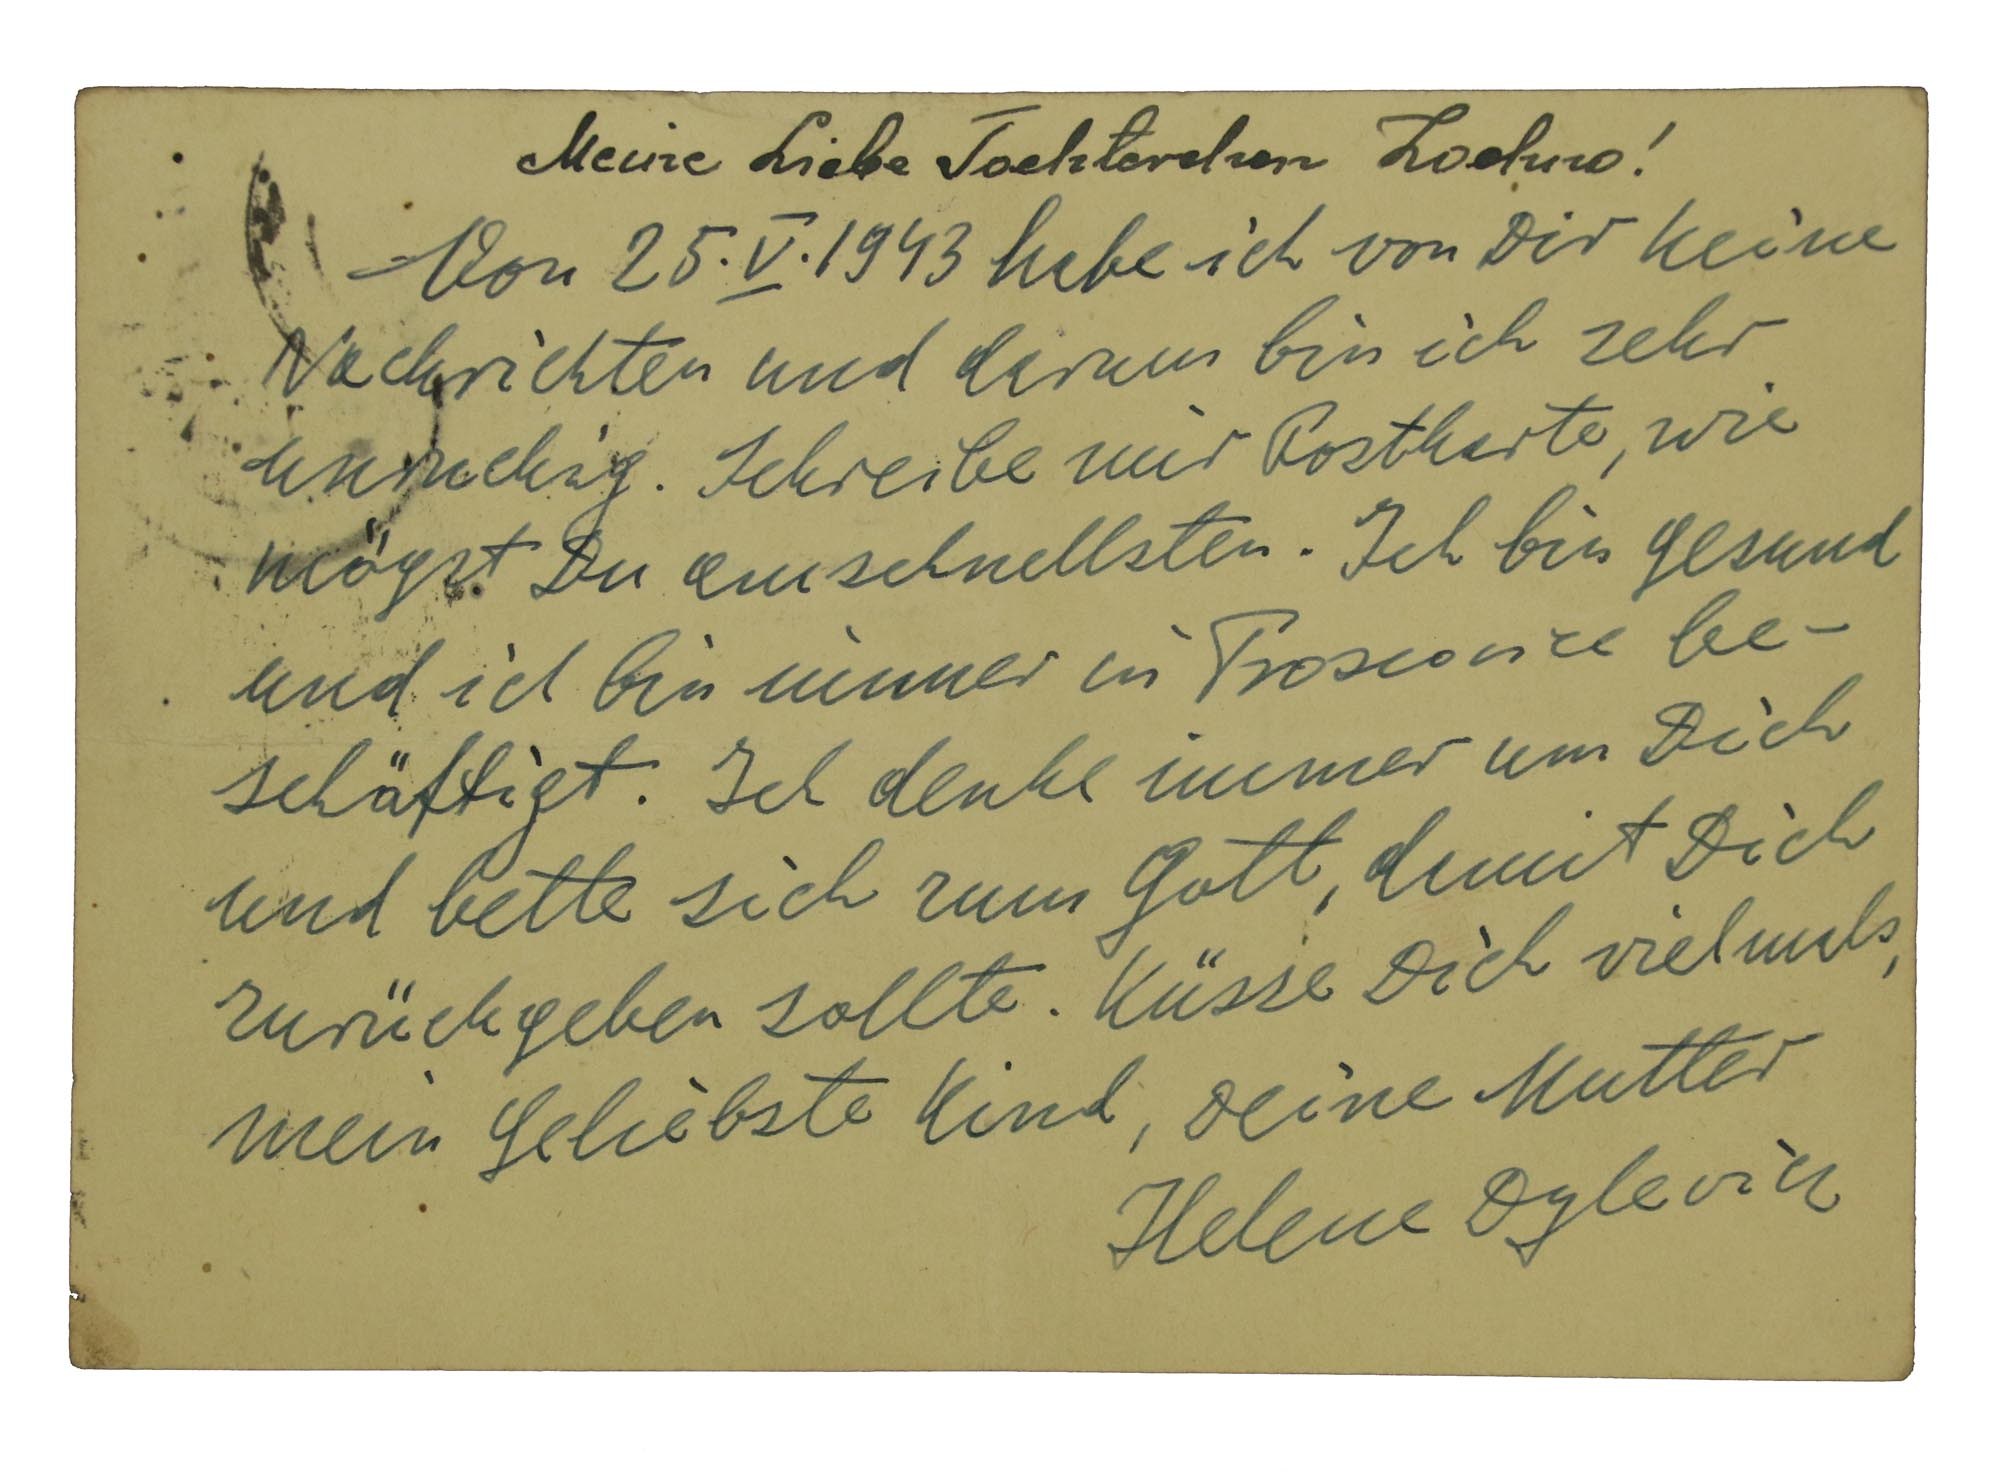 Meine Liebe Tochterchen Zochno!
Von 25.V.1943 habe ich von Dir keine
Nachrichten und darum bin ich sehr
unruchig. Schreibe mir Postkarte, wie
mögst Du amschnellsten. Ich bin gesund
und ich bin immer in Proszowice be-
schäftigt. Ich denke immer um Dich
und bette sich zum Gott, damit Dich
zurückgeben sollte. Küsse Dich vielmals,
mein geliebste Kind, Deine Mutter
Helene Dylevicz